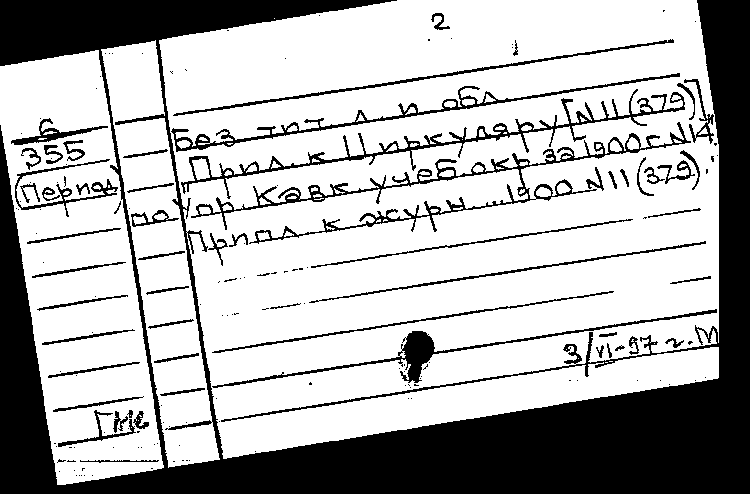 2
6
355
(Период)
Без тит. л. и обл.
Прил. к Циркуляру [N 11 (379)]
по Упр. Кавк. учеб. окр. за 1900 г. N 14"
"Прил. к журн. ... 1900 N 11 (379)."
3/VI-97 г. М